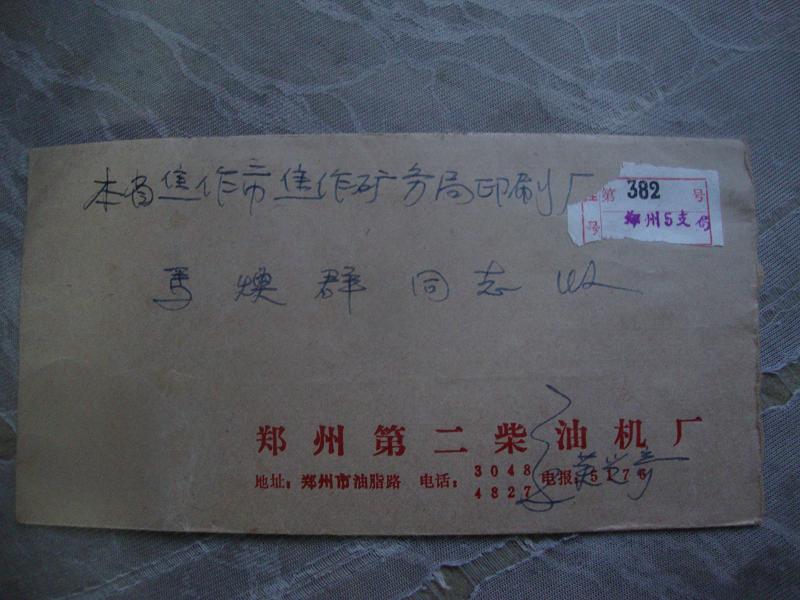 本省焦作市焦作矿务局印刷厂
第 382 号
号 郑州5支局
马焕群 同志 收
郑州第二柴油机厂
地址：郑州市油脂路 电话：3048 电报：5176
4827